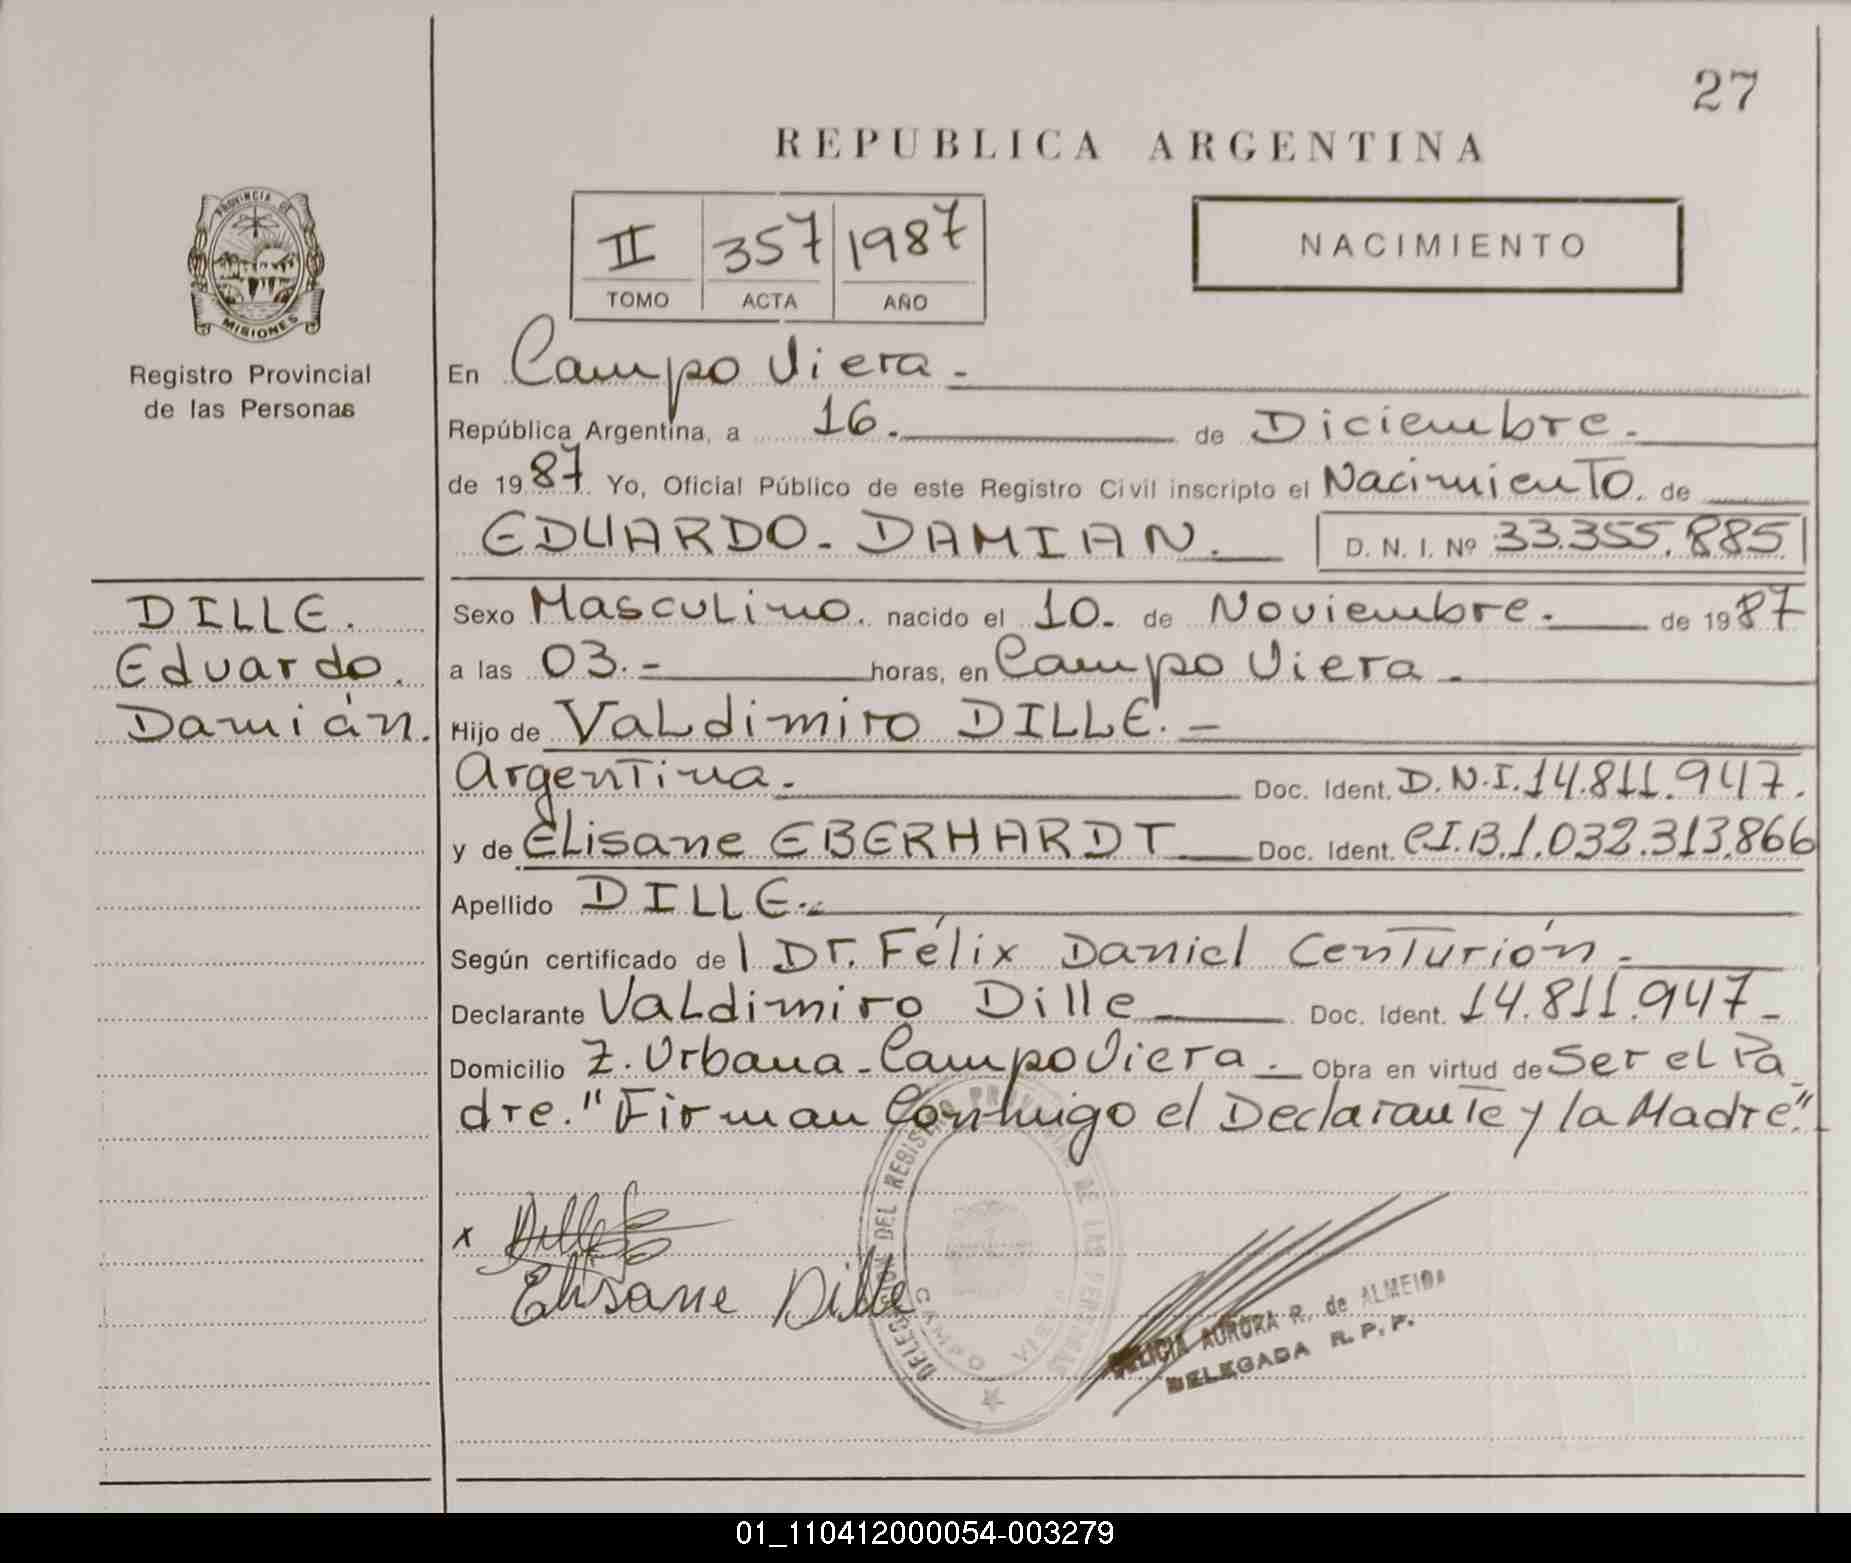 27
REPUBLICA ARGENTINA
II 357 1987
TOMO ACTA AÑO
NACIMIENTO
PROVINCIA DE
MISIONES
Registro Provincial
de las Personas
En Campo Viera.-
República Argentina, a 16. de Diciembre.
de 1987. Yo, Oficial Público de este Registro Civil inscripto el Nacimiento. de
EDUARDO - DAMIAN. D. N. I. Nº 33.355.885
DILLE.
Eduardo.
Damián.
Sexo Masculino. nacido el 10. de Noviembre. de 1987
a las 03.- horas, en Campo Viera.
Hijo de Valdimiro DILLE.-
Argentina. Doc. Ident. D.N.I. 14.811.947.
y de Elisane EBERHARDT Doc. Ident. C.I.B.1.032.313.866
Apellido DILLE.-
Según certificado del Dr. Félix Daniel Centurión.
Declarante Valdimiro Dille Doc. Ident. 14.811.947-
Domicilio Z. Urbana - Campo Viera. Obra en virtud de Ser el Pa
dre. "Firman Conmigo el Declarante y la Madre".
x Dille
Elisane Dille
DELEGACION DEL REGISTRO PROVINCIAL DE LAS PERSONAS
CAMPO VIERA
FELICIA AURORA R. de ALMEIDA
DELEGADA R. P. P.
01_110412000054-003279